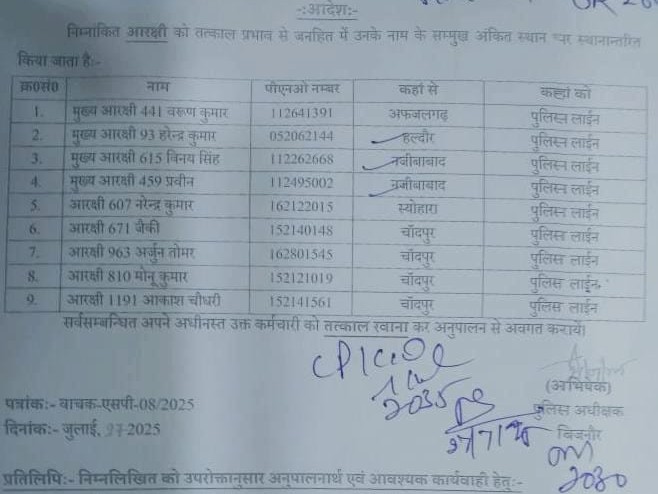 -:आदेश:-
निम्नांकित आरक्षी को तत्काल प्रभाव से जनहित में उनके नाम के सम्मुख अंकित स्थान पर स्थानान्तरित
किया जाता है:-
क्र०सं० नाम पीएनओ नम्बर कहां से कहां को
1. मुख्य आरक्षी 441 वरूण कुमार 112641391 अफजलगढ़ पुलिस लाईन
2. मुख्य आरक्षी 93 हरेन्द्र कुमार 052062144 हल्दौर पुलिस लाईन
3. मुख्य आरक्षी 615 विनय सिंह 112262668 नजीबाबाद पुलिस लाईन
4. मुख्य आरक्षी 459 प्रवीन 112495002 नजीबाबाद पुलिस लाईन
5. आरक्षी 607 नरेन्द्र कुमार 162122015 स्योहारा पुलिस लाईन
6. आरक्षी 671 जैकी 152140148 चॉदपुर पुलिस लाईन
7. आरक्षी 963 अर्जुन तोमर 162801545 चॉदपुर पुलिस लाईन
8. आरक्षी 810 मोनू कुमार 152121019 चॉदपुर पुलिस लाईन
9. आरक्षी 1191 आकाश चौधरी 152141561 चॉदपुर पुलिस लाईन
सर्वसम्बन्धित अपने अधीनस्त उक्त कर्मचारी को तत्काल रवाना कर अनुपालन से अवगत करायें।
(अभिषेक)
पत्रांक:- वाचक-एसपी-08/2025 पुलिस अधीक्षक
दिनांक:- जुलाई, 2025 बिजनौर
2035
2030
प्रतिलिपि:- निम्नलिखित को उपरोक्तानुसार अनुपालनार्थ एवं आवश्यक कार्यवाही हेतु:-